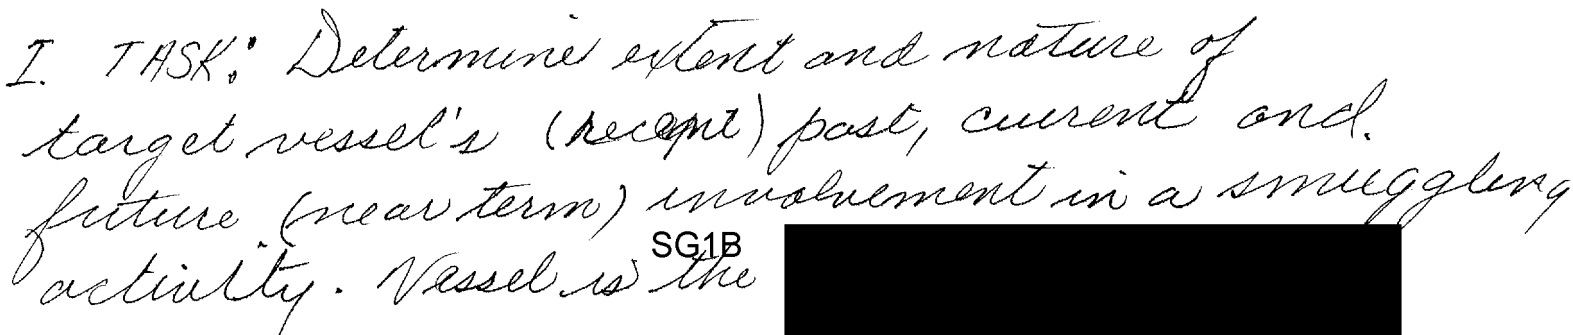 I. TASK: Determine extent and nature of
target vessel's (recent) past, current and.
future (near term) involvement in a smuggling
SG1B
activity. Vessel is the